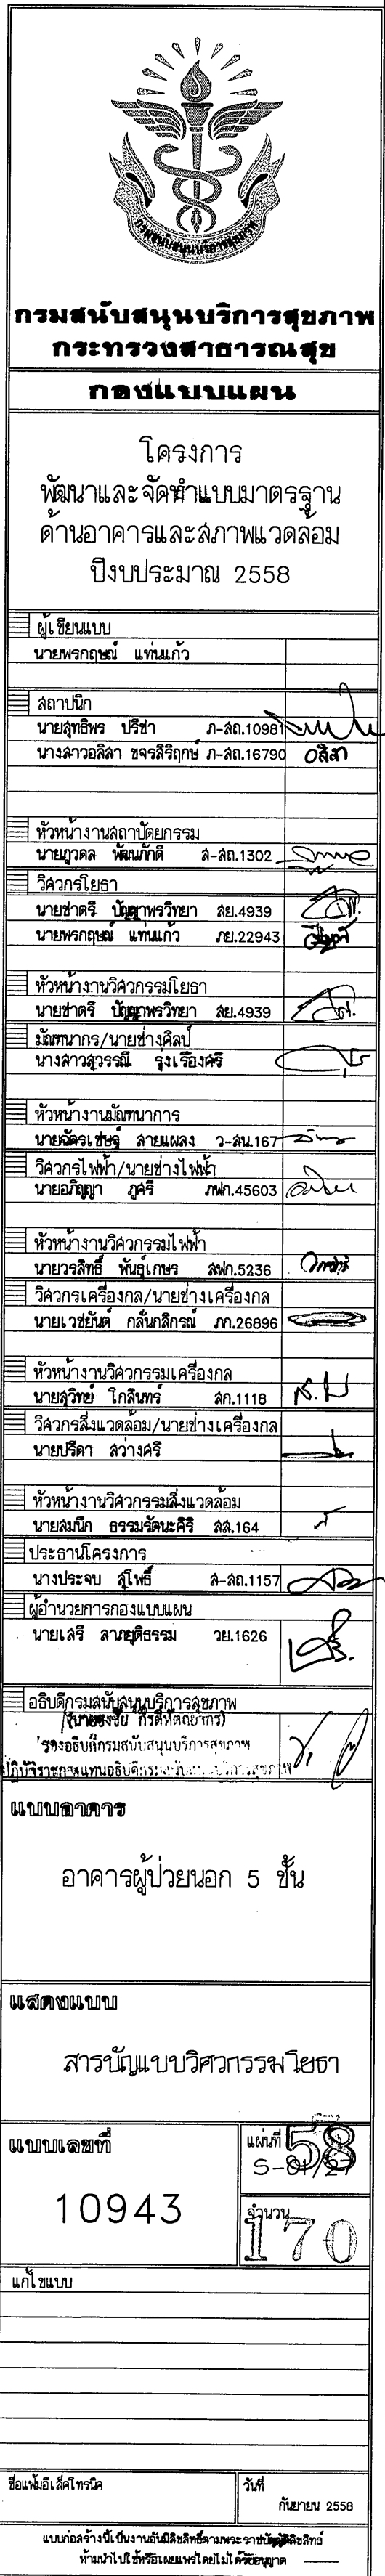 กรมสนับสนุนบริการสุขภาพ
กรมสนับสนุนบริการสุขภาพ
กระทรวงสาธารณสุข
กองแบบแผน
โครงการ
พัฒนาและจัดทำแบบมาตรฐาน
ด้านอาคารและสภาพแวดล้อม
ปีงบประมาณ 2558
ผู้เขียนแบบ
นายพรกฤษณ์ แท่นแก้ว
สถาปนิก
นายสุทธิพร ปรีชา ภ-สถ.10981
นางสาวอลิสา ขจรสิริฤกษ์ ภ-สถ.16790
อลิสา
หัวหน้างานสถาปัตยกรรม
นายภูวดล พัฒนภักดี ส-สถ.1302
วิศวกรโยธา
นายชาตรี ปัญญาพรวิทยา สย.4939
นายพรกฤษณ์ แท่นแก้ว ภย.22943
หัวหน้างานวิศวกรรมโยธา
นายชาตรี ปัญญาพรวิทยา สย.4939
มัณฑนากร/นายช่างศิลป์
นางสาวสุวรรณี รุ่งเรืองศรี
หัวหน้างานมัณฑนาการ
นายฉัตรเชษฐ์ สายแผลง ว-สน.167
วิศวกรไฟฟ้า/นายช่างไฟฟ้า
นายอภิญญา ภูศรี ภฟก.45603
หัวหน้างานวิศวกรรมไฟฟ้า
นายวรสิทธิ์ พันธุ์เกษร สฟก.5236
วิศวกรเครื่องกล/นายช่างเครื่องกล
นายเวชยันต์ กลั่นกสิกรณ์ ภก.26896
หัวหน้างานวิศวกรรมเครื่องกล
นายสุวิทย์ ใกสินทร์ สก.1118
วิศวกรสิ่งแวดล้อม/นายช่างเครื่องกล
นายปรีดา สว่างศรี
หัวหน้างานวิศวกรรมสิ่งแวดล้อม
นายสมนึก ธรรมรัตนะศิริ สส.164
ประธานโครงการ
นางประจบ สุโพธิ์ ส-สถ.1157
ผู้อำนวยการกองแบบแผน
นายเสรี ลาภยุติธรรม วย.1626
อธิบดีกรมสนับสนุนบริการสุขภาพ
(นายธงชัย กีรติหัตถยากร)
รองอธิบดีกรมสนับสนุนบริการสุขภาพ
ปฏิบัติราชการแทนอธิบดีกรมสนับสนุนบริการสุขภาพ
แบบอาคาร
อาคารผู้ป่วยนอก 5 ชั้น
แสดงแบบ
สารบัญแบบวิศวกรรมโยธา
แบบเลขที่
10943
แผ่นที่
58
S-01/27
จำนวน
170
แก้ไขแบบ
ชื่อแฟ้มอิเล็คโทรนิค
วันที่
กันยายน 2558
แบบก่อสร้างนี้เป็นงานอันมีลิขสิทธิ์ตามพระราชบัญญัติลิขสิทธิ์
ห้ามนำไปใช้หรือเผยแพร่โดยไม่ได้รับอนุญาต